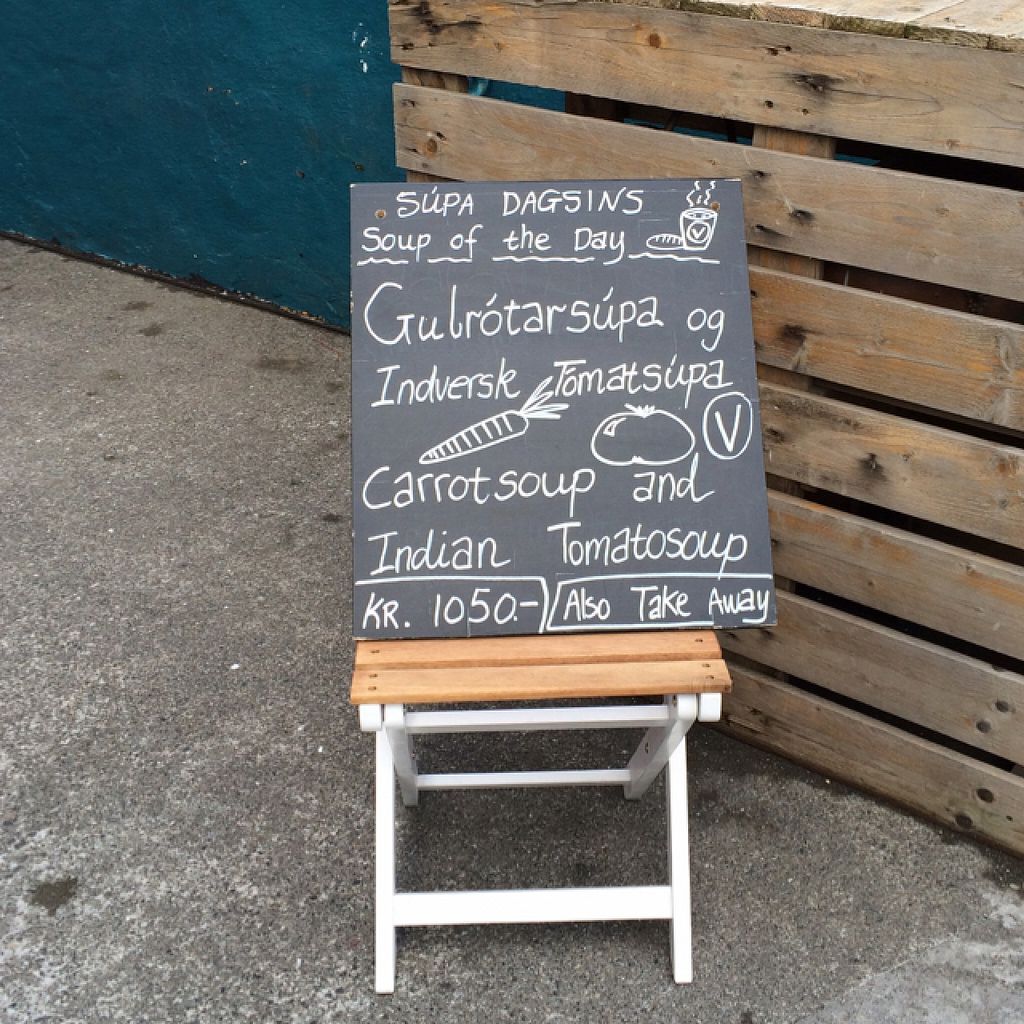 SÚPA DAGSINS
Soup of the Day
V
Gulrótarsúpa og
Indversk Tómatsúpa
V
Carrotsoup and
Indian Tomatosoup
KR. 1050.- Also Take Away